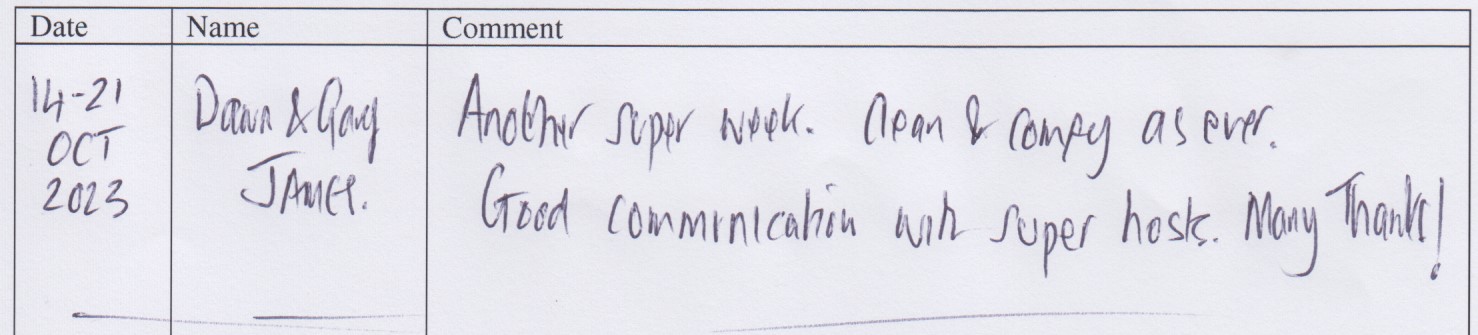 Date Name Comment
14-21 Dawn & Gary Another super week. Clean & comfy as ever.
OCT
2023 JAMES. Good communication with super hosts. Many Thanks!